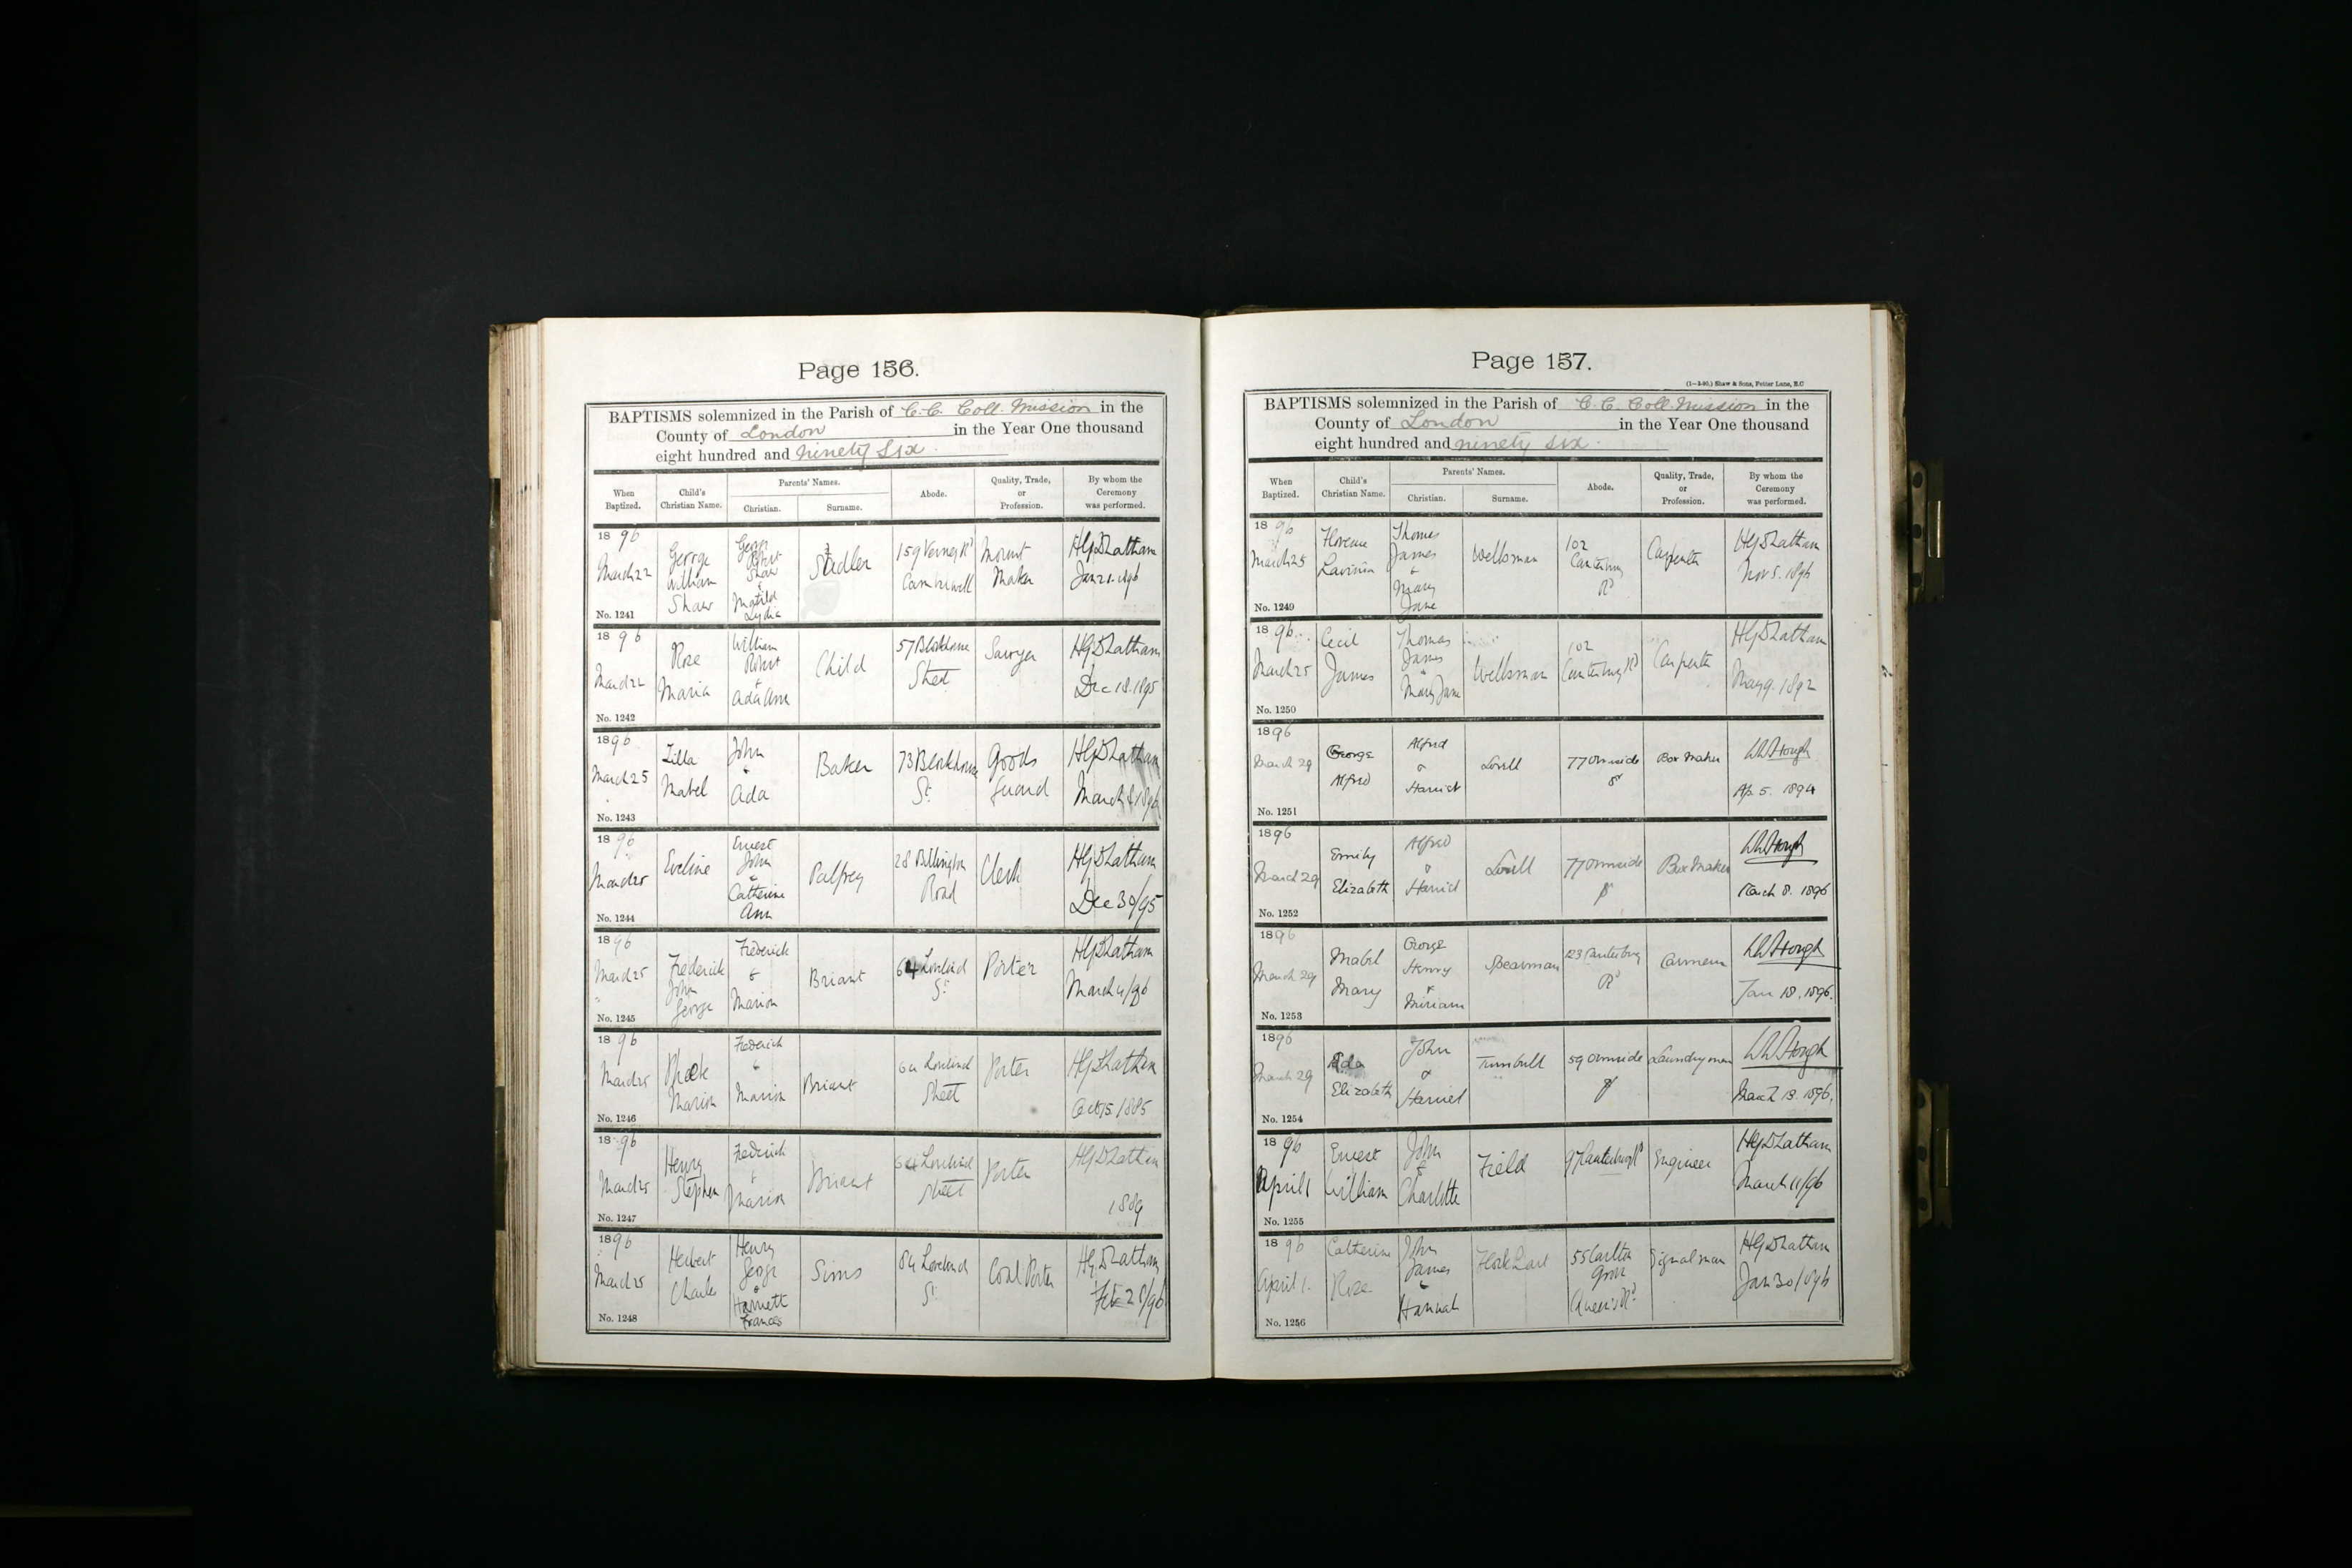 Page 156.
BAPTISMS solemnized in the Parish of C. C. Coll. Mission in the
County of London in the Year One thousand
eight hundred and ninety six.
When Baptized.
Child's Christian Name.
Parents' Names.
Christian.
Surname.
Abode.
Quality, Trade, or Profession.
By whom the Ceremony was performed.
1896
March 22
No. 1241
George
William
Shaw
Shaw
&
Matilda
Lydia
Sadler
159 Verney Rd
Camberwell
Mount
Maker
HGDLatham
Jan 21. 1896
1896
March 22
No. 1242
Rose
Maria
William
Robert
&
Ada Ann
Child
Street
Sawyer
HGDLatham
Dec 18. 1895
1896
March 25
No. 1243
Zilla
Mabel
John
&
Ada
Baker
St.
Goods
Guard
HGDLatham
1896
March 25
No. 1244
Eveline
Ernest
John
&
Catherine
Ann
Palfrey
28
Road
Clerk
HGDLatham
Dec 30/95
1896
March 25
No. 1245
Frederick
John
George
Frederick
&
Marion
Briant
64 Loveland
St.
Porter
HGDLatham
March 4/96
1896
March 25
No. 1246
Marion
Frederick
&
Marion
Briant
64 Loveland
Street
Porter
HGDLatham
Oct 15. 1885
1896
March 25
No. 1247
Henry
Stephen
Frederick
&
Marion
Briant
64 Loveland
Street
Porter
HGDLatham
1889
1896
March 25
No. 1248
Herbert
Charles
Henry
George
&
Harriett
Frances
Sims
84 Loveland
St.
Coal Porter
HGDLatham
Feb 28/96
Page 157.
(1—3-90.) Shaw & Sons, Fetter Lane, E.C
BAPTISMS solemnized in the Parish of C. C. Coll. Mission in the
County of London in the Year One thousand
eight hundred and ninety six.
When Baptized.
Child's Christian Name.
Parents' Names.
Christian.
Surname.
Abode.
Quality, Trade, or Profession.
By whom the Ceremony was performed.
1896
March 25
No. 1249
Florence
Lavinia
Thomas
James
&
Mary
Jane
Wellsman
102
Canterbury
Rd
Carpenter
HGDLatham
Nov 5. 1896
1896
March 25
No. 1250
Cecil
James
Thomas
James
&
Mary Jane
Wellsman
102
Canterbury Rd
Carpenter
HGDLatham
May 9. 1892
1896
March 29
No. 1251
George
Alfred
Alfred
&
Harriet
Lovell
77 Ormside
St
Box Maker
WWHough
Ap. 5. 1894
1896
March 29
No. 1252
Emily
Elizabeth
Alfred
&
Harriet
Lovell
77 Ormside
St
Box Maker
WWHough
March 8. 1896
1896
March 29
No. 1253
Mabel
Mary
George
Henry
&
Miriam
Spearman
123 Canterbury
Rd
Carman
WWHough
Jan 18. 1896.
1896
March 29
No. 1254
Ada
Elizabeth
John
&
Harriet
Turnbull
59 Ormside
St
Laundryman
WWHough
1896.
1896
April 1
No. 1255
Ernest
William
John
&
Charlotte
Field
97 Canterbury Rd
Engineer
HGDLatham
March 11/96
1896
April 1.
No. 1256
Catherine
Rose
John
James
&
Hannah
55 Carlton
Grove
Queen's Rd
Signalman
HGDLatham
Jan 30/1896